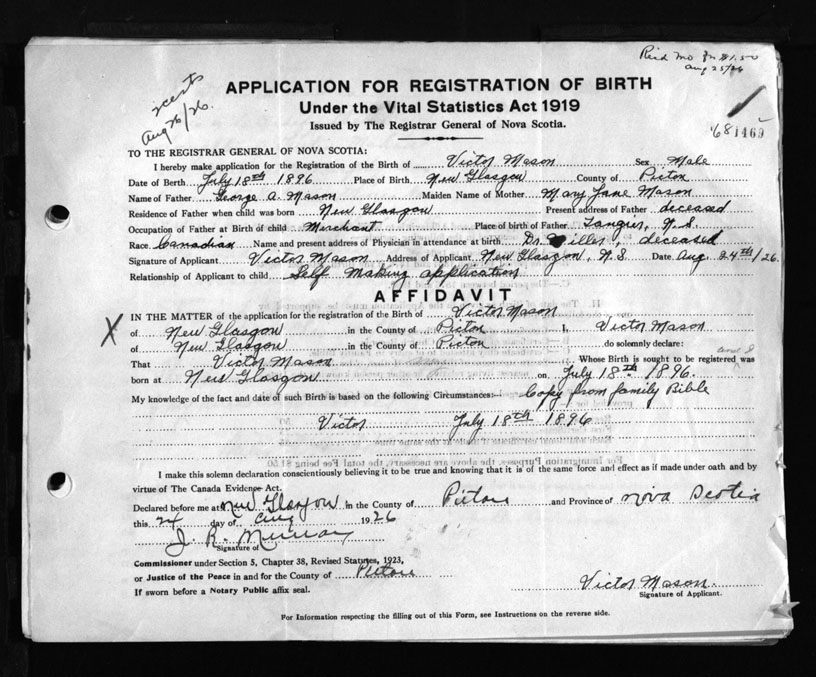 Recd mo for $1.50
Aug 25/26
2 certs
Aug 26/26.
APPLICATION FOR REGISTRATION OF BIRTH
Under the Vital Statistics Act 1919
Issued by The Registrar General of Nova Scotia.
681469
TO THE REGISTRAR GENERAL OF NOVA SCOTIA:
I hereby make application for the Registration of the Birth of Victor Mason Sex Male
Date of Birth July 18th 1896 Place of Birth New Glasgow County of Pictou
Name of Father George A. Mason Maiden Name of Mother Mary Jane Mason
Residence of Father when child was born New Glasgow Present address of Father deceased
Occupation of Father at Birth of child Merchant Place of birth of Father Tangier, N.S.
Race Canadian Name and present address of Physician in attendance at birth Dr. Miller, deceased
Signature of Applicant Victor Mason Address of Applicant New Glasgow, N.S Date Aug. 24th/26.
Relationship of Applicant to child Self Making application
AFFIDAVIT
IN THE MATTER of the application for the registration of Birth of Victor Mason
X of New Glasgow in the County of Pictou I, Victor Mason
of New Glasgow in the County of Pictou do solemnly declare:
That Victor Mason Whose Birth is sought to be registered was
born at New Glasgow on July 18th 1896.
My knowledge of the fact and date of such Birth is based on the following Circumstances:— Copy from family Bible
Victor July 18th 1896
I make this solemn declaration conscientiously believing it to be true and knowing that it is of the same force and effect as if made under oath and by
virtue of The Canada Evidence Act.
Declared before me at New Glasgow in the County of Pictou and Province of Nova Scotia
this 24 day of Aug 1926
J. R. Murray
Signature of
Commissioner under Section 5, Chapter 38, Revised Statutes, 1923,
or Justice of the Peace in and for the County of Pictou
If sworn before a Notary Public affix seal.
Victor Mason.
Signature of Applicant.
For Information respecting the filling out of this Form, see Instructions on the reverse side.